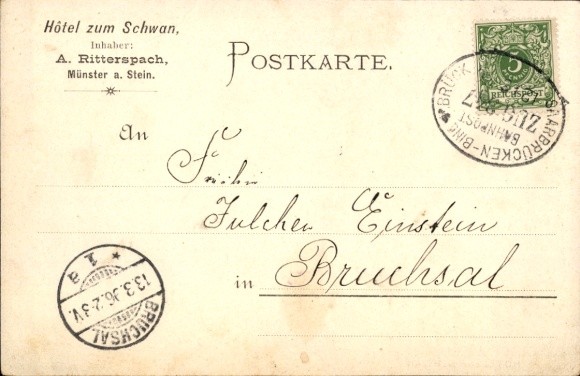 Hôtel zum Schwan,
Inhaber:
A. Ritterspach,
Münster a. Stein.
POSTKARTE.
5
REICHSPOST
SAARBRÜCKEN-BING
BAHNPOST
ZUG
An
Julchen Einstein
in Bruchsal
BRUCHSAL
13.3.96.2-3V.
* 1 a